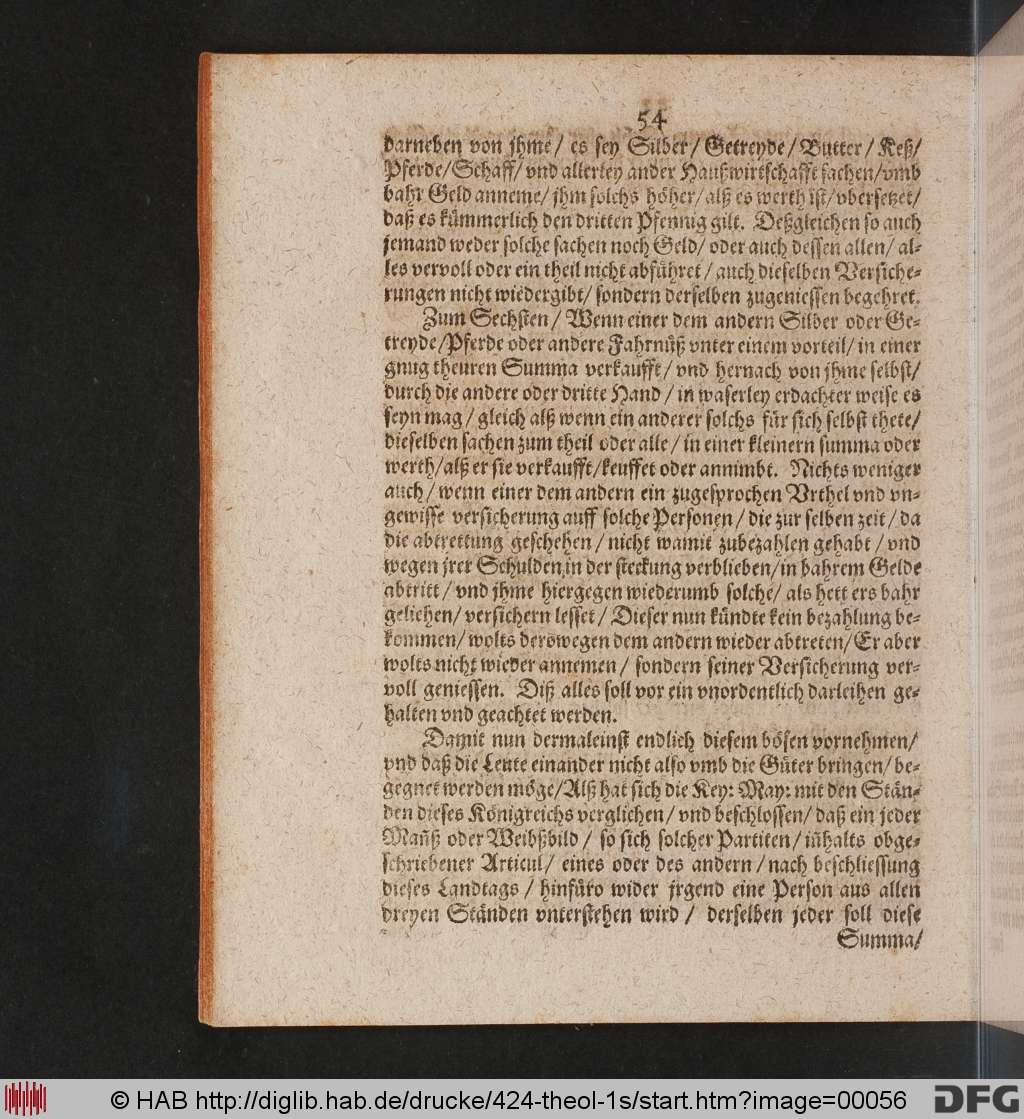 54
darneben von jhme / es sey Silber / Getreyde / Butter / Keß /
Pferde / Schaff / vnd allerley ander Haußwirtschafft sachen / vmb
bahr Geld anneme / jhm solchs höher / alß es werth ist / vbersetzet /
daß es kümmerlich den dritten Pfennig gilt. Deßgleichen so auch
jemand weder solche sachen noch Geld / oder auch dessen allen / al-
les vervoll oder ein theil nicht abführet / auch dieselben Versiche-
rungen nicht wiedergibt / sondern derselben zugeniessen begehret.
Zum Sechsten / Wenn einer dem andern Silber oder Ge-
treyde / Pferde oder andere Fahrnüß vnter einem vorteil / in einer
gnug theuren Summa verkaufft / vnd hernach von jhme selbst /
durch die andere oder dritte Hand / in waserley erdachter weise es
seyn mag / gleich alß wenn ein anderer solchs für sich selbst thete /
dieselben sachen zum theil oder alle / in einer kleinern summa oder
werth / alß er sie verkaufft / keuffet oder annimbt. Nichts weniger
auch / wenn einer dem andern ein zugesprochen Vrthel vnd vn-
gewisse versicherung auff solche Personen / die zur selben zeit / da
die abtrettung geschehen / nicht wamit zubezahlen gehabt / vnd
wegen jrer Schulden in der steckung verblieben / in bahrem Gelde
abtritt / vnd jhme hiergegen wiederumb solche / als hett ers bahr
gelichen / versichern lesset / Dieser nun kündte kein bezahlung be-
kommen / wolts derswegen dem andern wieder abtreten / Er aber
wolts nicht wieder annemen / sondern seiner Versicherung ver-
voll geniessen. Diß alles soll vor ein vnordentlich darleihen ge-
halten vnd geachtet werden.
Damit nun dermaleinst endlich diesem bösen vornehmen /
vnd daß die Leute einander nicht also vmb die Güter bringen / be-
gegnet werden möge / Alß hat sich die Key: May: mit den Stän-
den dieses Königreichs verglichen / vnd beschlossen / daß ein jeder
Mañß oder Weibßbild / so sich solcher Partiten / iñhalts obge-
schriebener Articul / eines oder des andern / nach beschliessung
dieses Landtags / hinfüro wider jrgend eine Person aus allen
dreyen Ständen vnterstehen wird / derselben jeder soll diese
Summa /
© HAB http://diglib.hab.de/drucke/424-theol-1s/start.htm?image=00056
DFG